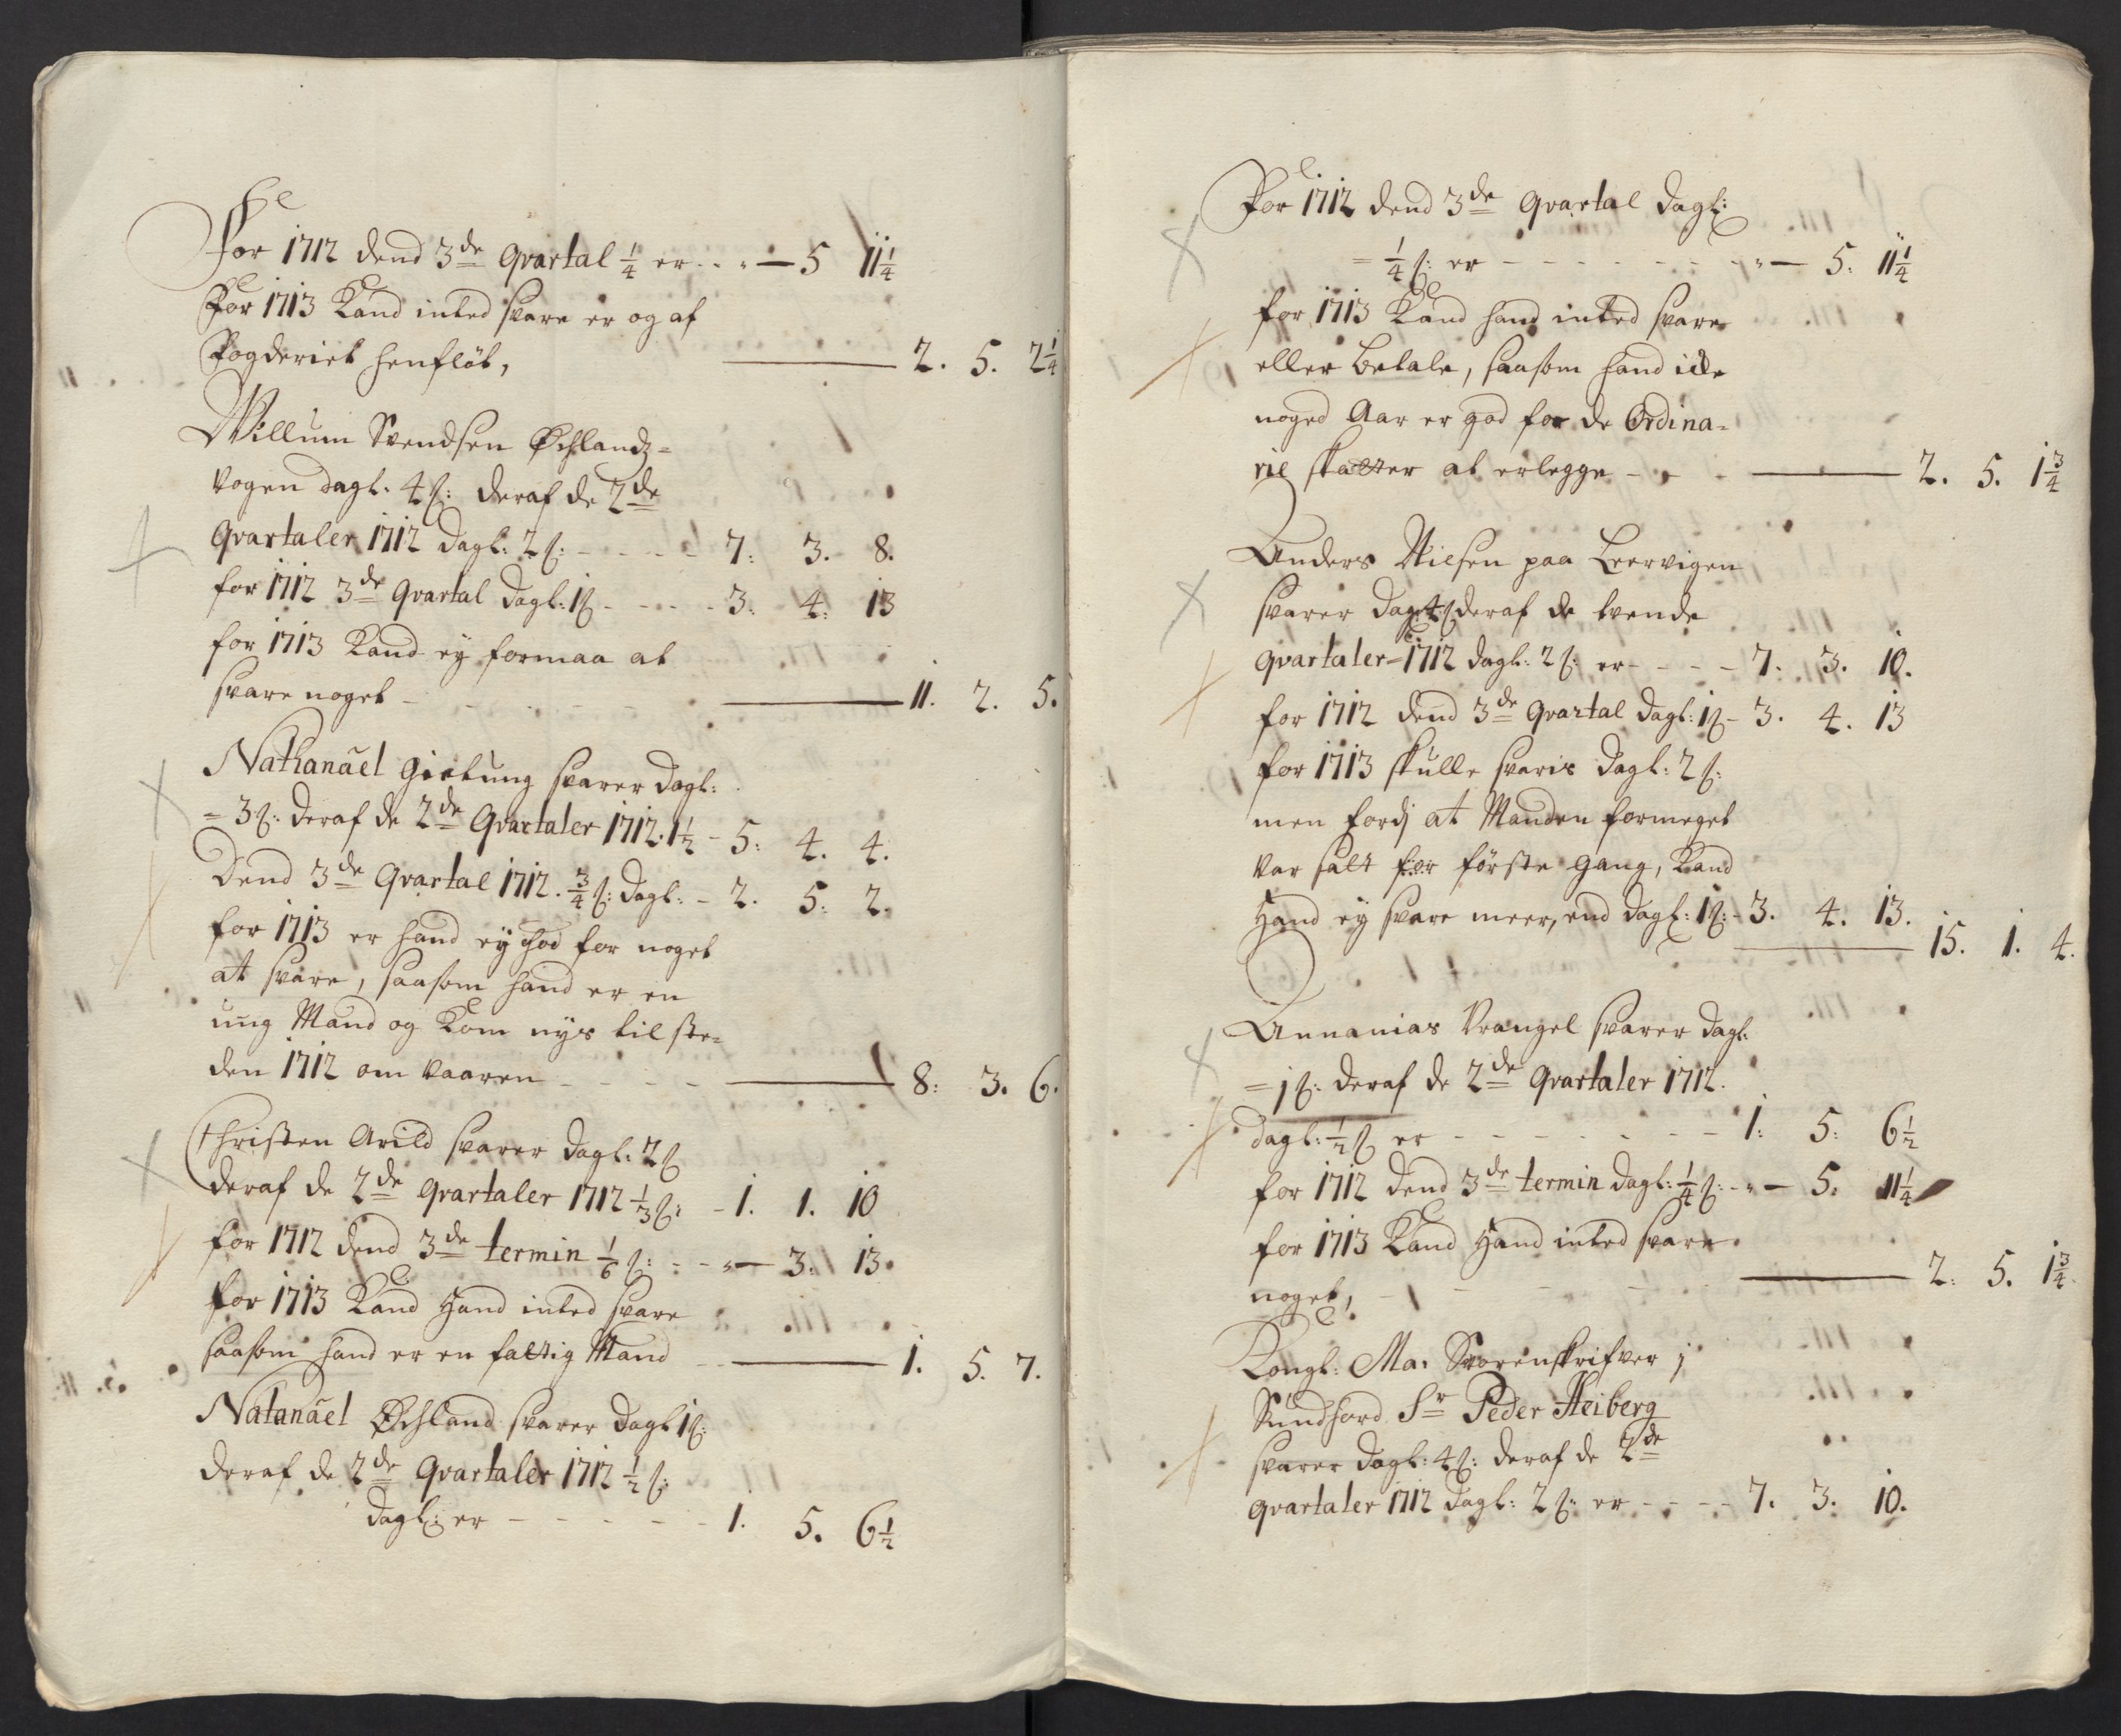 For 1712 dend 3de Qvartal 1/4 er - - „ — 5 11 1/4
For 1713 Kand inted svare er og af
Fogderiet henfløt, — 2. 5. 2 1/4
Willum Svendsen Øchlandz=
vogen dagl. 4 s: deraf de 2de
Qvartaler 1712 dagl: 2 s: - - - - 7: 3. 8.
for 1712 3de Qvartal dagl: 1 s - - - - 3: 4: 13
for 1713 Kand ey formaa at
svare noget - - - - — 11. 2. 5.
Nathanäel Gietung svarer dagl:
= 3 s: deraf de 2de Qvartaler 1712. 1 1/2 - 5: 4. 4.
Dend 3de Qvartal 1712. 3/4 s: dagl: - 2. 5: 2.
for 1713 er hand ey god for noget
at svare, saasom hand er en
ung Mand og Kom nys til ste=
den 1712 om Vaaren - - - - — 8: 3. 6.
Christen Arild svarer dagl: 2 s
deraf de 2de qvartaler 1712 1/3 s: - 1. 1. 10
for 1712 dend 3de termin 1/6 s: - - „ — 3: 13.
for 1713 Kand Hand inted svare
saasom hand er en fattig Mand - — 1. 5. 7.
Natanäel Øchland svarer dagl 1 s:
deraf de 2de Qvartaler 1712 1/2 s:
dagl: er - - - - - - 1. 5. 6 1/2
For 1712 dend 3de Qvartal dagl:
= 1/4 s: er - - - - - - „ — 5: 11 1/4
for 1713 Kand hand inted svare
eller betale, saasom hand icke
noged Aar er god for de Ordina=
rie skatter at erlegge - - - — 2. 5. 1 3/4
Anders Nielsen paa Leervigen
svarer dagl: 4 s deraf de tvende
Qvartaler = 1712 dagl: 2 s: er - - - - 7: 3. 10.
for 1712 dend 3de Qvartal dagl: 1 s - 3. 4. 13
for 1713 skulle svaris dagl: 2 s:
men fordj at Manden formeget
var satt for første gang, Kand
Hand ey svare meer, end dagl: 1 s: - 3. 4. 13.
— 15. 1. 4.
Annanias Vrangel svarer dagl:
= 1 s: deraf de 2de Qvartaler 1712.
dagl: 1/2 s er - - - - - - - 1: 5: 6 1/2
for 1712 dend 3de termin dagl: 1/4 s: - „ — 5. 11 1/4
for 1713 Kand Hand inted svare
noget, - - - - — 2: 5. 1 3/4
Kongl: Ma. Sorenskrifver j
Sundfiord Sr Peder Heiberg
svarer dagl: 4 s: deraf de 2de
qvartaler 1712 dagl: 2 s: er - - - - 7. 3: 10.